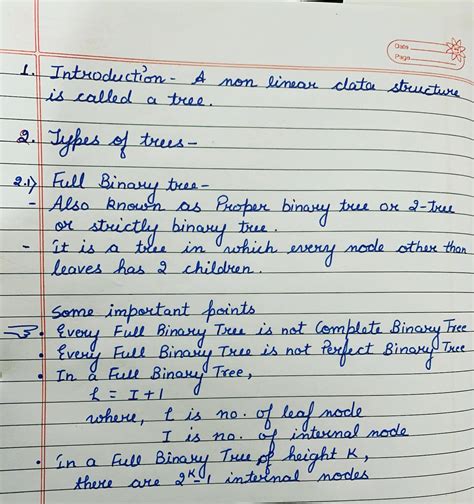 Date
Page
1. Introduction - A non linear data structure
is called a tree.
2. Types of trees -
2.1) Full Binary tree -
- Also known as Proper binary tree or 2-tree
or strictly binary tree.
- it is a tree in which every node other than
leaves has 2 children.
Some important points
• Every Full Binary Tree is not Complete Binary Tree
• Every Full Binary Tree is not Perfect Binary Tree
• In a Full Binary Tree,
L = I+1
where, L is no. of leaf node
I is no. of internal node
• in a Full Binary Tree of height K,
there are 2^K-1 internal nodes